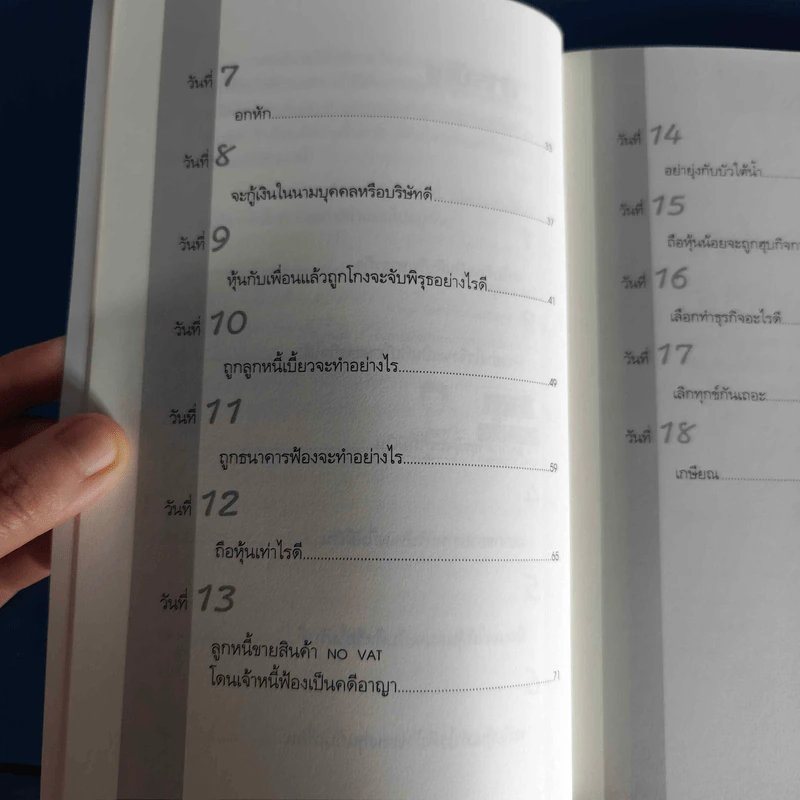 วันที่ 7
อกหัก
วันที่ 8
จะกู้เงินในนามบุคคลหรือบริษัทดี 37
วันที่ 9
หุ้นกับเพื่อนแล้วถูกโกงจะจับพิรุธอย่างไรดี 41
วันที่ 10
ถูกลูกหนี้เบี้ยวจะทำอย่างไร 49
วันที่ 11
ถูกธนาคารฟ้องจะทำอย่างไร 59
วันที่ 12
ถือหุ้นเท่าไรดี 65
วันที่ 13
ลูกหนี้ขายสินค้า NO VAT
โดนเจ้าหนี้ฟ้องเป็นคดีอาญา 71
วันที่ 14
อย่ายุ่งกับบัวใต้น้ำ
วันที่ 15
ถือหุ้นน้อยจะถูกฮุบกิจกา
วันที่ 16
เลือกทำธุรกิจอะไรดี
วันที่ 17
เลิกทุกข์กันเถอะ
วันที่ 18
เกษียณ